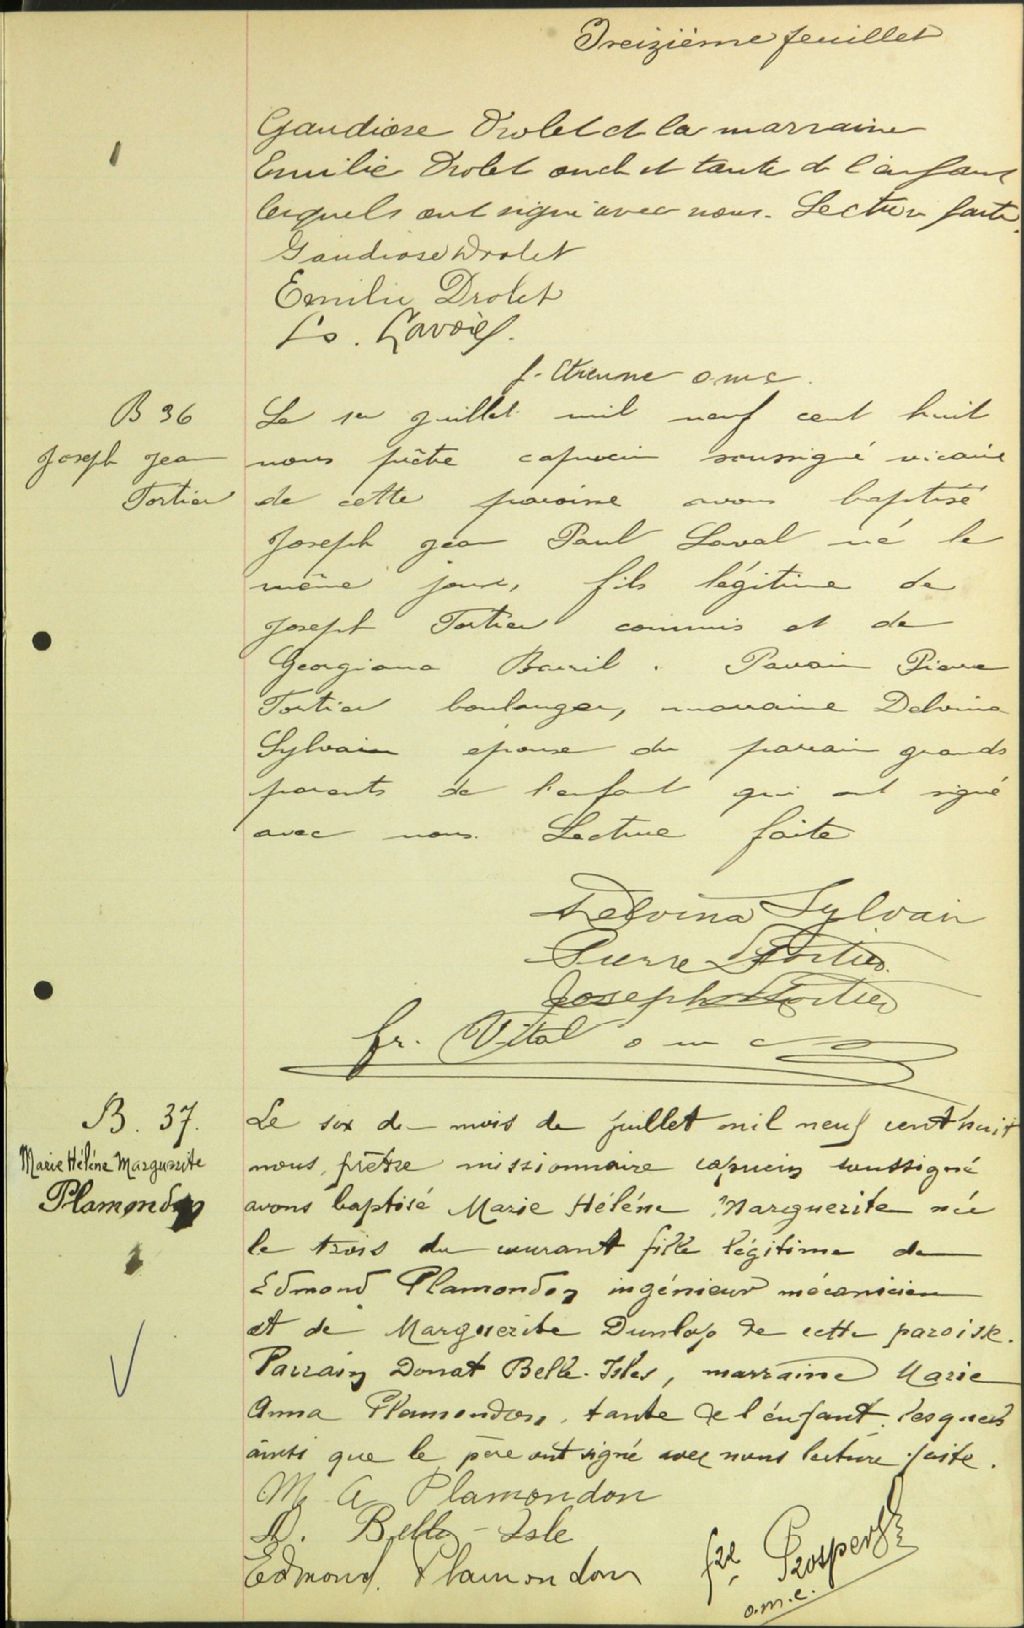 Treizième feuillet
Gaudiose Drolet et la marraine
Emilie Drolet oncle et tante de l'enfant
lesquels ont signé avec nous. Lecture faite.
Gaudiose Drolet
Emilie Drolet
Ls. Lavoie
f. Etienne o m c.
B 36
Joseph Jean
Fortier
Le 1er juillet mil neuf cent huit
nous prêtre capucin soussigné vicaire
de cette paroisse avons baptisé
Joseph Jean Paul Laval né le
même jour, fils légitime de
Joseph Fortier commis et de
Georgiana Barril. Parrain Pierre
Fortier boulanger, marraine Delvina
Sylvain épouse du parrain grands
parents de l'enfant qui ont signé
avec nous. Lecture faite
Delvina Sylvain
Pierre Fortier
Joseph Fortier
fr. Vital o m c
B. 37.
Marie Hélène Marguerite
Plamondon
Le six du mois de juillet mil neuf cent huit
nous, prêtre missionnaire capucin soussigné
avons baptisé Marie Hélène Marguerite née
le trois du courant fille légitime de
Edmond Plamondon ingénieur mécanicien
et de Marguerite Dunlop de cette paroisse.
Parrain Donat Belle-Isles, marraine Marie
Anna Plamondon, tante de l'enfant lesquels
ainsi que le père ont signé avec nous lecture faite.
M. A. Plamondon
D. Belle-Isle
Edmond Plamondon
fre Prosper
o.m.c.